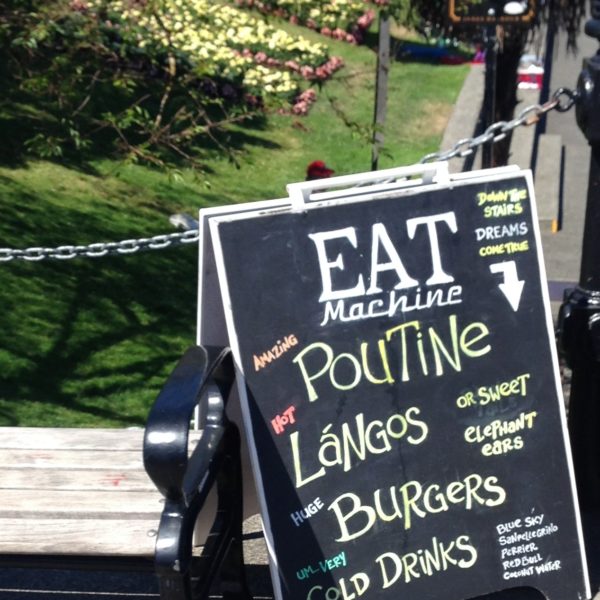 EAT
Machine
DOWN THE
STAIRS
DREAMS
COME TRUE
AMAZING
POUTINE
HOT
LáNGOS
OR SWEET
ELEPHANT
EARS
HUGE
BURGERS
UM...VERY
COLD DRINKS
BLUE SKY
SANPELLEGRINO
PERRIER
RED BULL
COCONUT WATER